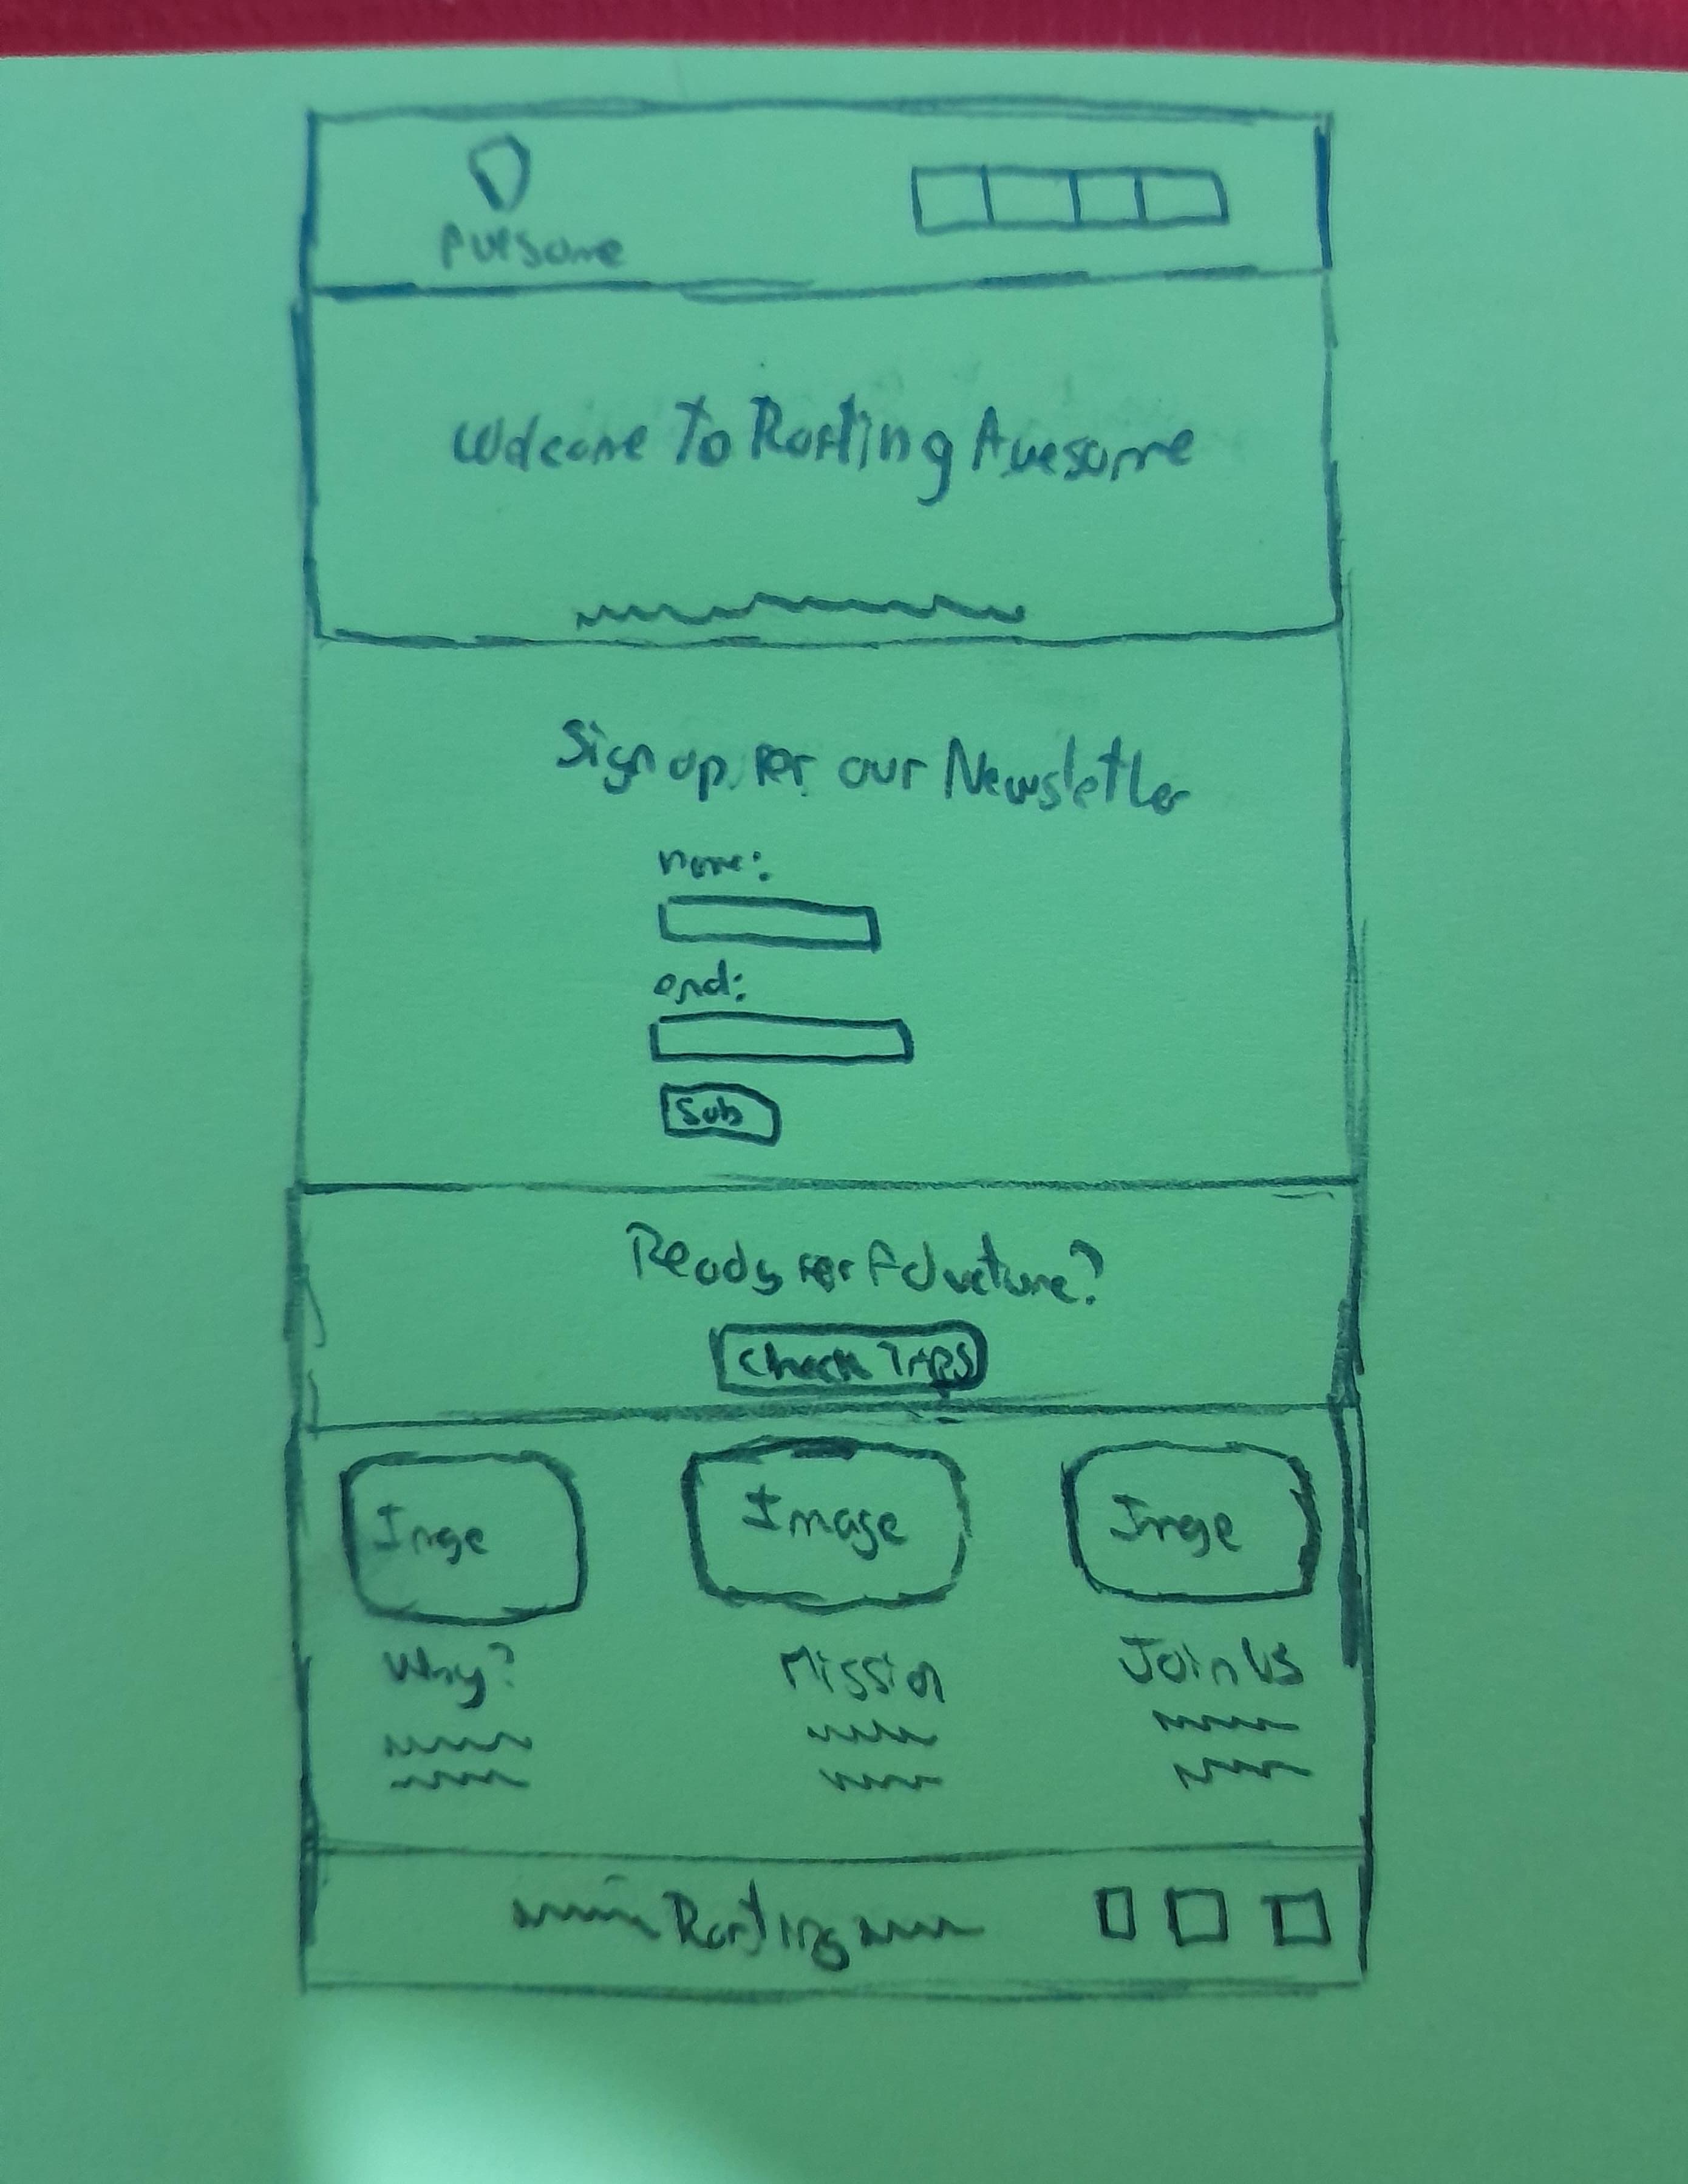 Awesome
Welcome To Rafting Awesome
Sign up for our Newsletter
name:
Sub
Ready for Adveture?
Check Trips
Image Image Image
Why? Mission Join Us
Rafting